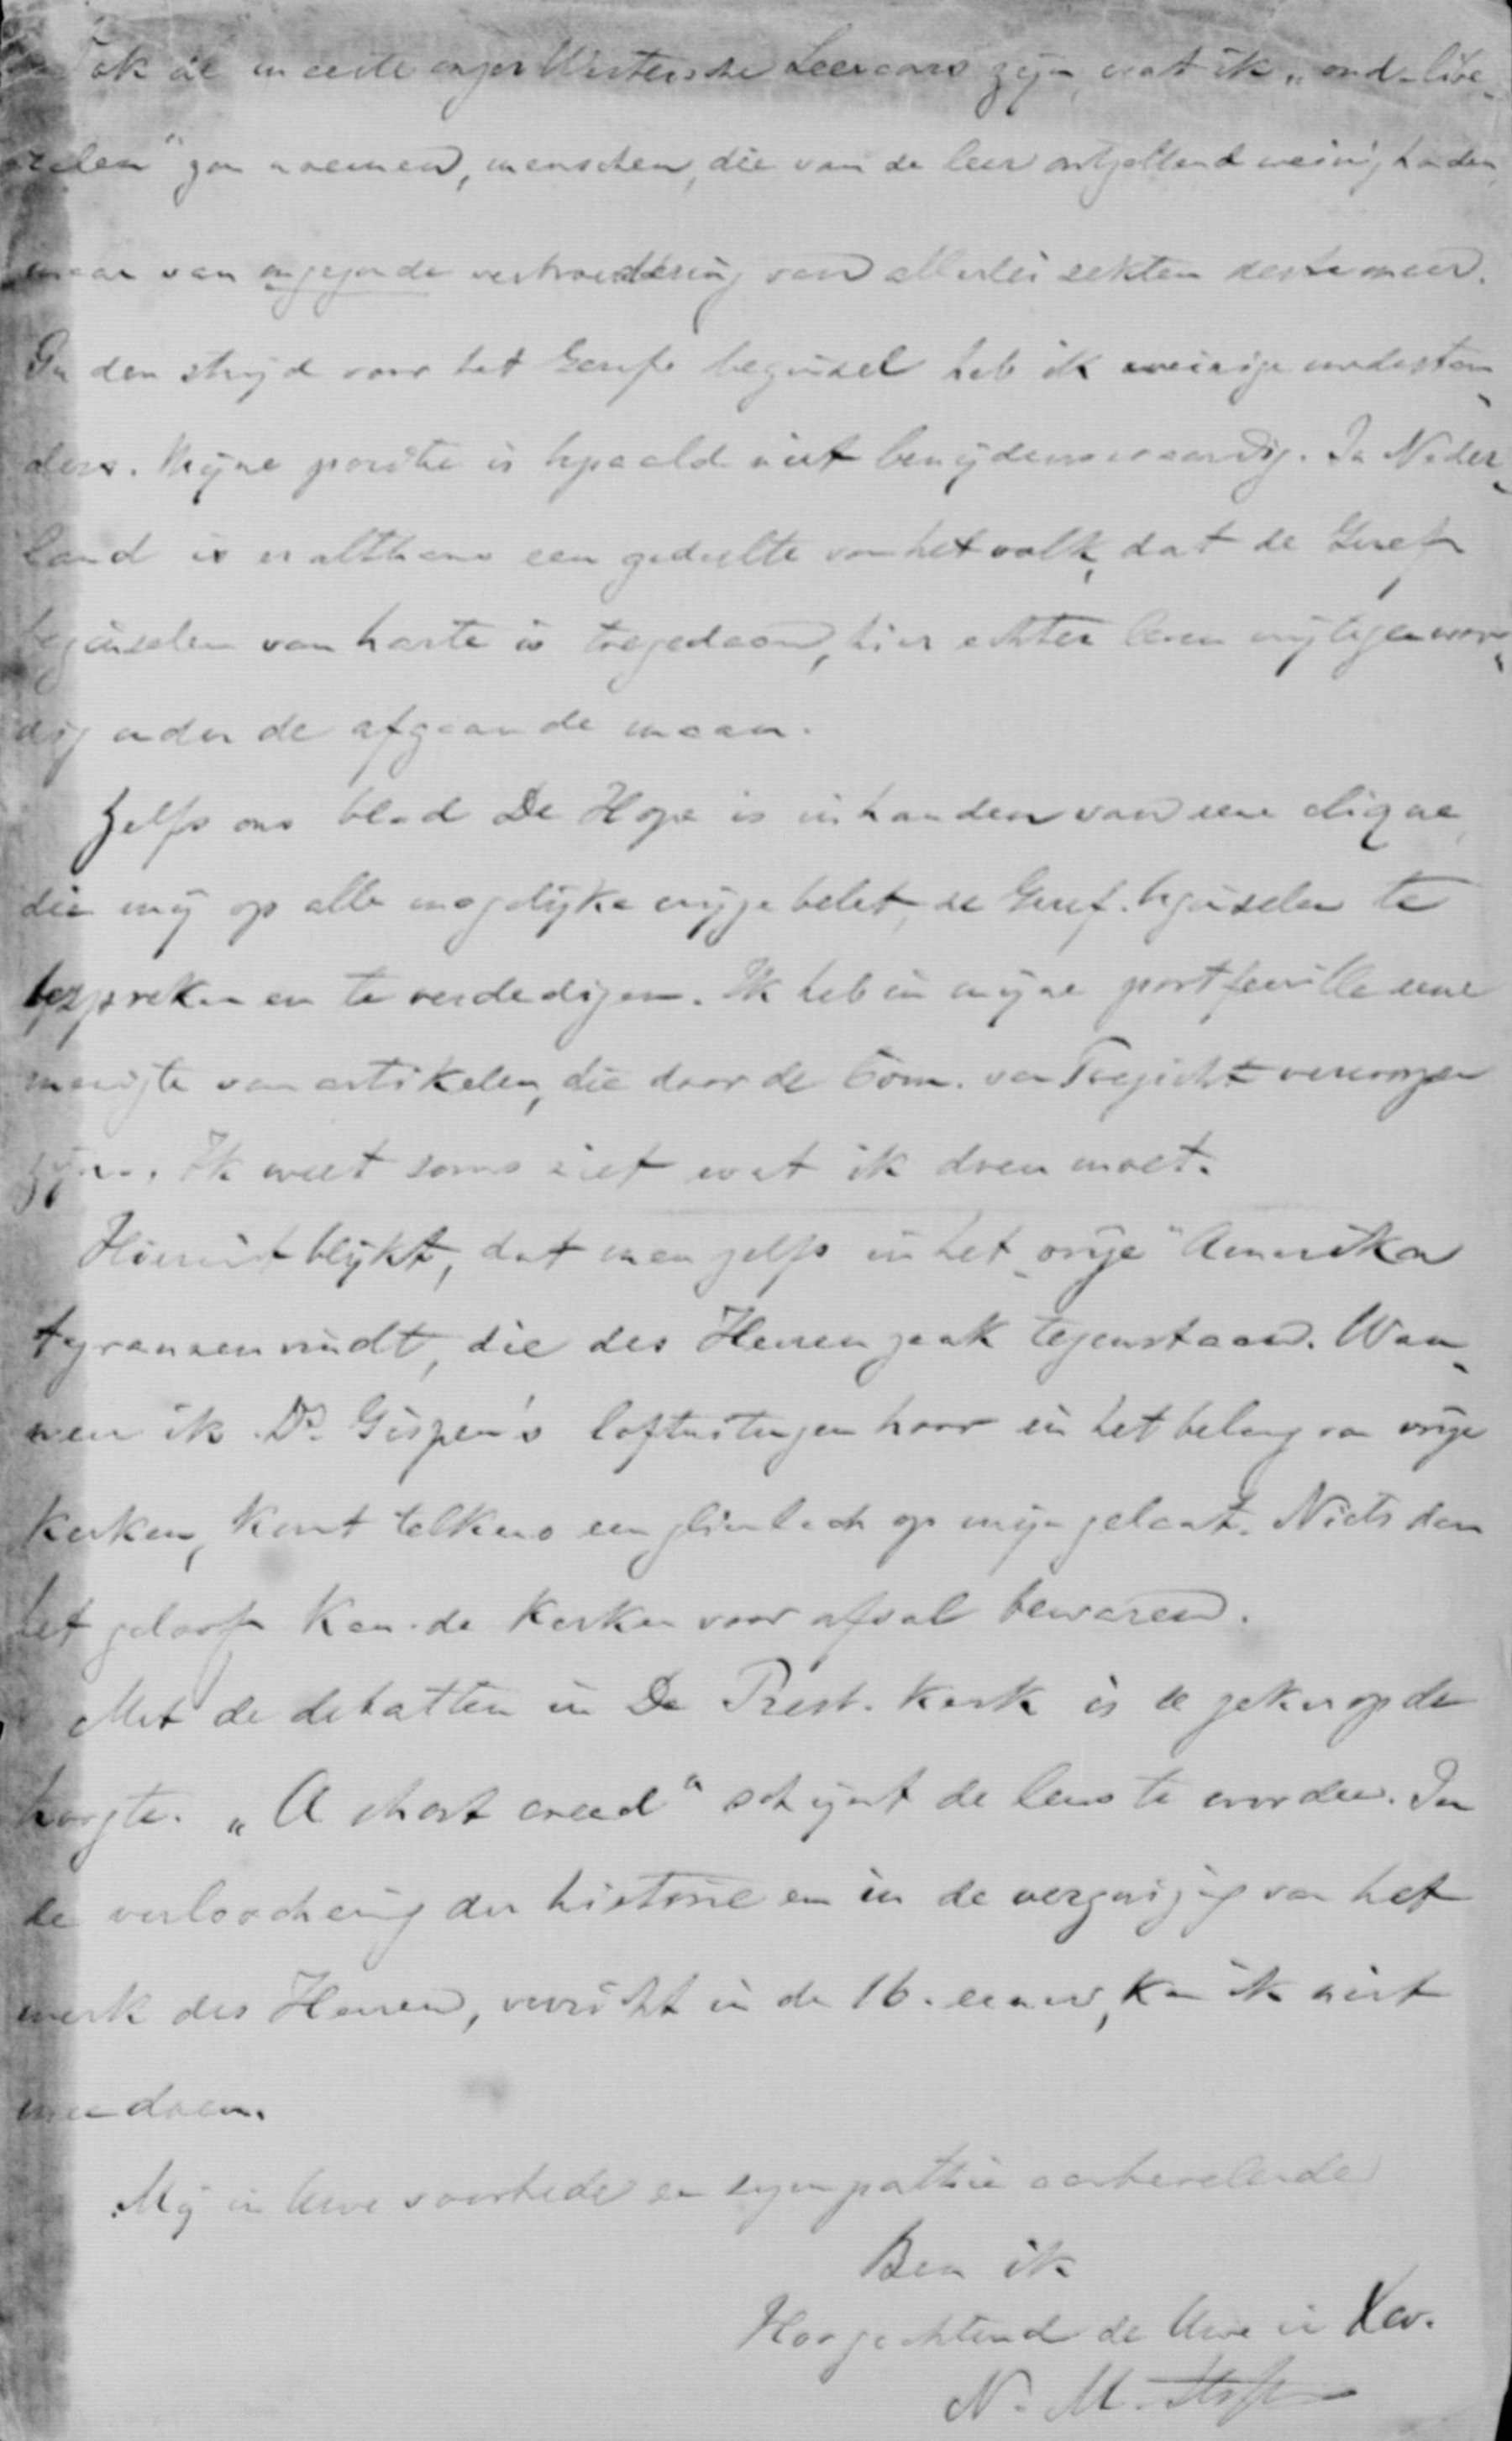 Ook de meeste onzer Westersche Leeraars zijn, wat ik „oud-libe-
ralen" zou noemen, menschen, die van de leer ontzettend weinig houden,
maar van ongezonde verbroedering van allerlei sekten des te meer.
In den strijd voor het Geref. beginsel heb ik weinige medestan-
ders. Mijne positie is bepaald niet benijdenswaardig. In Neder-
land is er althans een gedeelte van het volk, dat de Geref.
beginselen van harte is toegedaan, hier echter leven wij tegenwoor-
dig onder de afgaande maan.
Zelfs ons blad De Hope is in handen van eene clique,
die mij op alle mogelijke wijze belet, de Geref. beginselen te
bespreken en te verdedigen. Ik heb in mijne portfeuille eene
menigte van artikelen, die door de Com. van Toezicht verworpen
zijn. Ik weet soms niet wat ik doen moet.
Hieruit blijkt, dat men zelfs in het „vrije" Amerika
tyrannen vindt, die des Heeren zaak tegenstaan. Wan-
neer ik Ds. Gispen's loftuitingen hoor in het belang van vrije
kerken, komt telkens een glimlach op mijn gelaat. Niets dan
het geloof kan de kerken voor afval bewaren.
Met de debatten in De Presb. Kerk is U zeker op de
hoogte. „A short creed" schijnt de leus te worden. In
de verloochening der historie en in de verguizing van het
werk des Heeren, verricht in de 16e eeuw, kan ik niet
meedoen.
Mij in Uwe voorbede en sympathie aanbevelende
Ben ik
Hoogachtend de Uwe in Xto.
N. M. Steffens